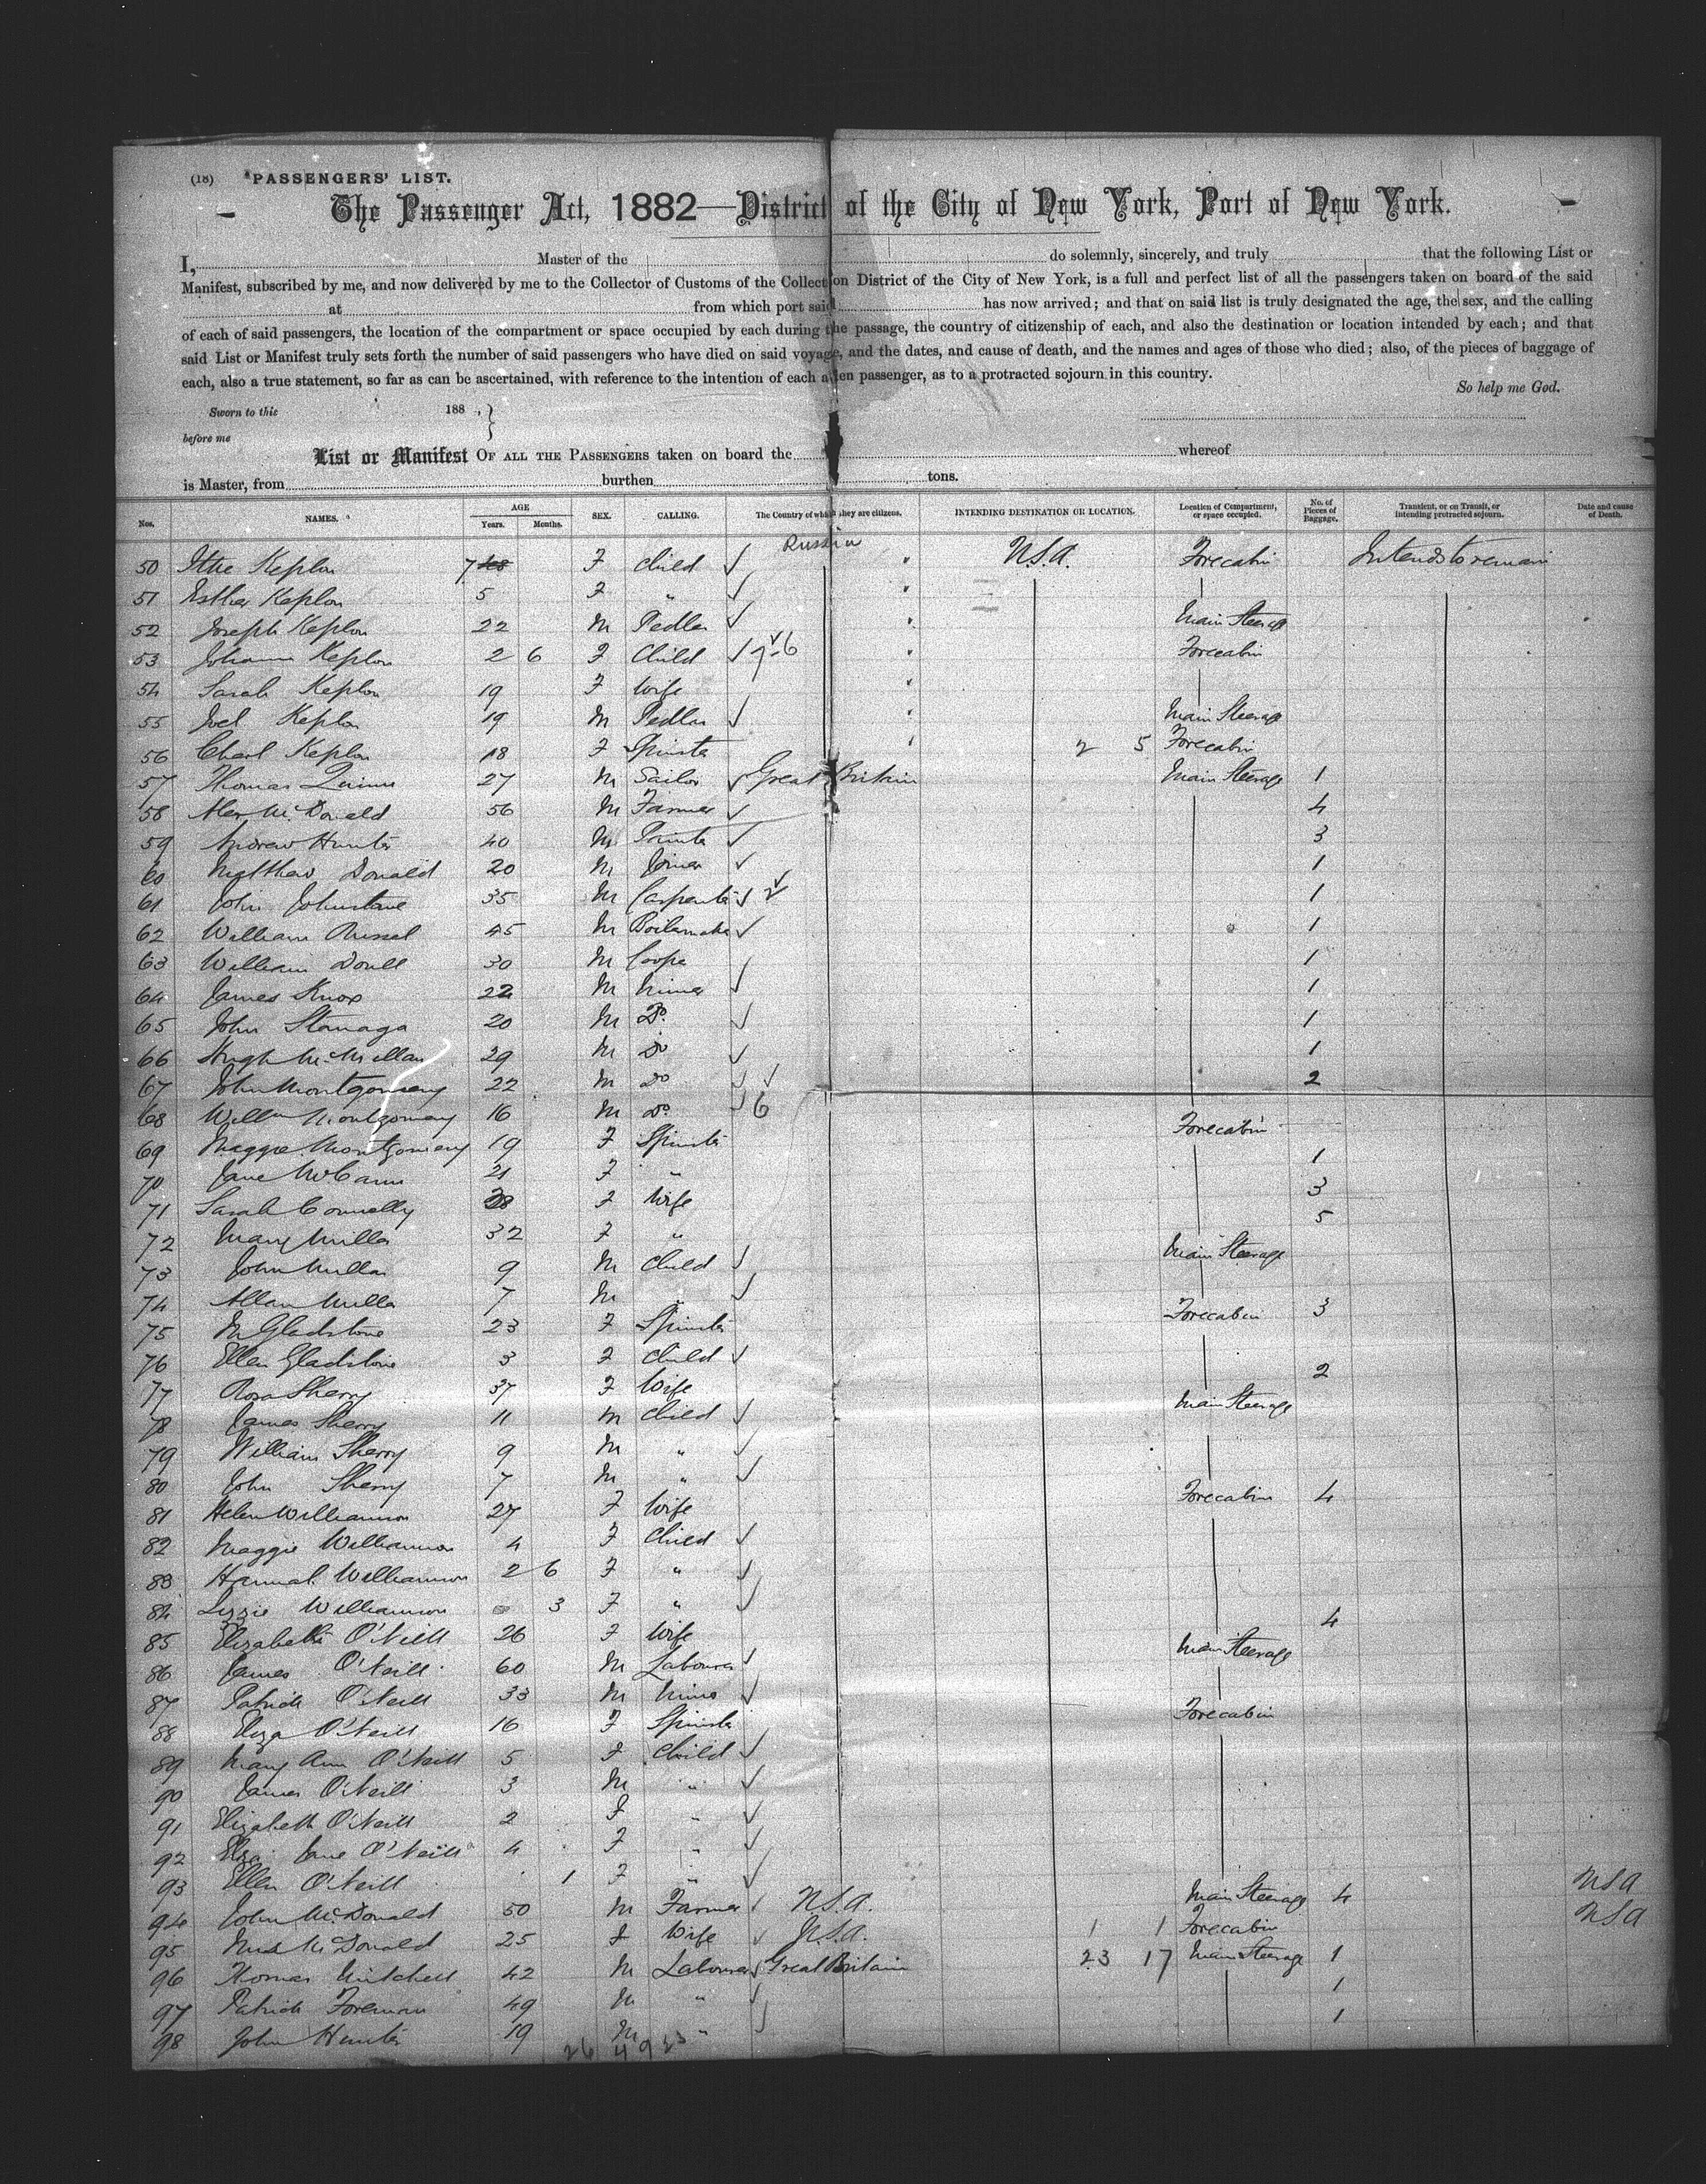 (18) PASSENGERS' LIST.
The Passenger Act, 1882—District of the City of New York, Port of New York.
I, Master of the do solemnly, sincerely, and truly that the following List or
Manifest, subscribed by me, and now delivered by me to the Collector of Customs of the Collection District of the City of New York, is a full and perfect list of all the passengers taken on board of the said
at from which port said has now arrived; and that on said list is truly designated the age, the sex, and the calling
of each of said passengers, the location of the compartment or space occupied by each during the passage, the country of citizenship of each, and also the destination or location intended by each; and that
said List or Manifest truly sets forth the number of said passengers who have died on said voyage, and the dates, and cause of death, and the names and ages of those who died; also, of the pieces of baggage of
each, also a true statement, so far as can be ascertained, with reference to the intention of each alien passenger, as to a protracted sojourn in this country.
So help me God.
Sworn to this 188 , }
before me
List or Manifest OF ALL THE PASSENGERS taken on board the whereof
is Master, from burthen tons.
Nos. NAMES. AGE Years. Months. SEX. CALLING. The Country of which they are citizens. INTENDING DESTINATION OR LOCATION. Location of Compartment, or space occupied. No. of Pieces of Baggage. Transient, or on Transit, or intending protracted sojourn. Date and cause of Death.
50 Keplon 7 F Child Russia U.S.A. Forecabin Intends to remain
51 Esther Keplon 5 F "
52 Joseph Keplon 22 M Pedler Main Steerage
53 Johann Keplon 2 6 F Child 6 Forecabin
54 Sarah Keplon 19 F Wife
55 Joel Keplon 19 M Pedler Main Steerage
56 Keplon 18 F Spinster 2 5 Forecabin
57 Thomas Quinn 27 M Sailor Great Britain Main Steerage 1
58 Alex McDonald 56 M Farmer 4
59 Andrew Hunter 40 M 3
60 Matthew Donald 20 M Joiner 1
61 John Johnstone 35 M Carpenter 1
62 William Russel 45 M Boilermaker 1
63 William Doull 30 M Cooper 1
64 James Knox 22 M Miner 1
65 John Stanaga 20 M Do. 1
66 Hugh McMillan 29 M Do 1
67 John Montgomery 22 M Do 2
68 Willm Montgomery 16 M Do. 6
69 Maggie Montgomery 19 F Spinster Forecabin
70 Jane McCann 21 F " 1
71 Sarah Connelly F Wife 3
72 Mary Miller 32 F " 5
73 John Miller 9 M Child Main Steerage
74 Allan Miller 7 M "
75 M Gladstone 23 F Spinster Forecabin 3
76 Ellen Gladstone 3 F Child
77 Rosa Sherry 37 F Wife 2
78 James Sherry 11 M Child Main Steerage
79 William Sherry 9 M "
80 John Sherry 7 M "
81 Helen Williamson 27 F Wife Forecabin 4
82 Maggie Williamson 4 F Child
83 Hannah Williamson 2 6 F "
84 Lizzie Williamson 3 F "
85 Elizabeth O'Neill 26 F Wife 4
86 James O'Neill 60 M Labourer Main Steerage
87 Patrick O'Neill 33 M Miner
88 Eliza O'Neill 16 F Spinster Forecabin
89 Mary Ann O'Neill 5 F Child
90 James O'Neill 3 M "
91 Elizabeth O'Neill 2 F "
92 Eliza Jane O'Neill 4 F "
93 Ellen O'Neill 1 F "
94 John McDonald 50 M Farmer U.S.A. Main Steerage 4 USA
95 McDonald 25 F Wife U.S.A. 1 1 Forecabin USA
96 Thomas Mitchell 42 M Labourer Great Britain 23 17 Main Steerage 1
97 Patrick Foreman 49 M " 1
98 John Hunter 19 M " 1
26 4 9 23